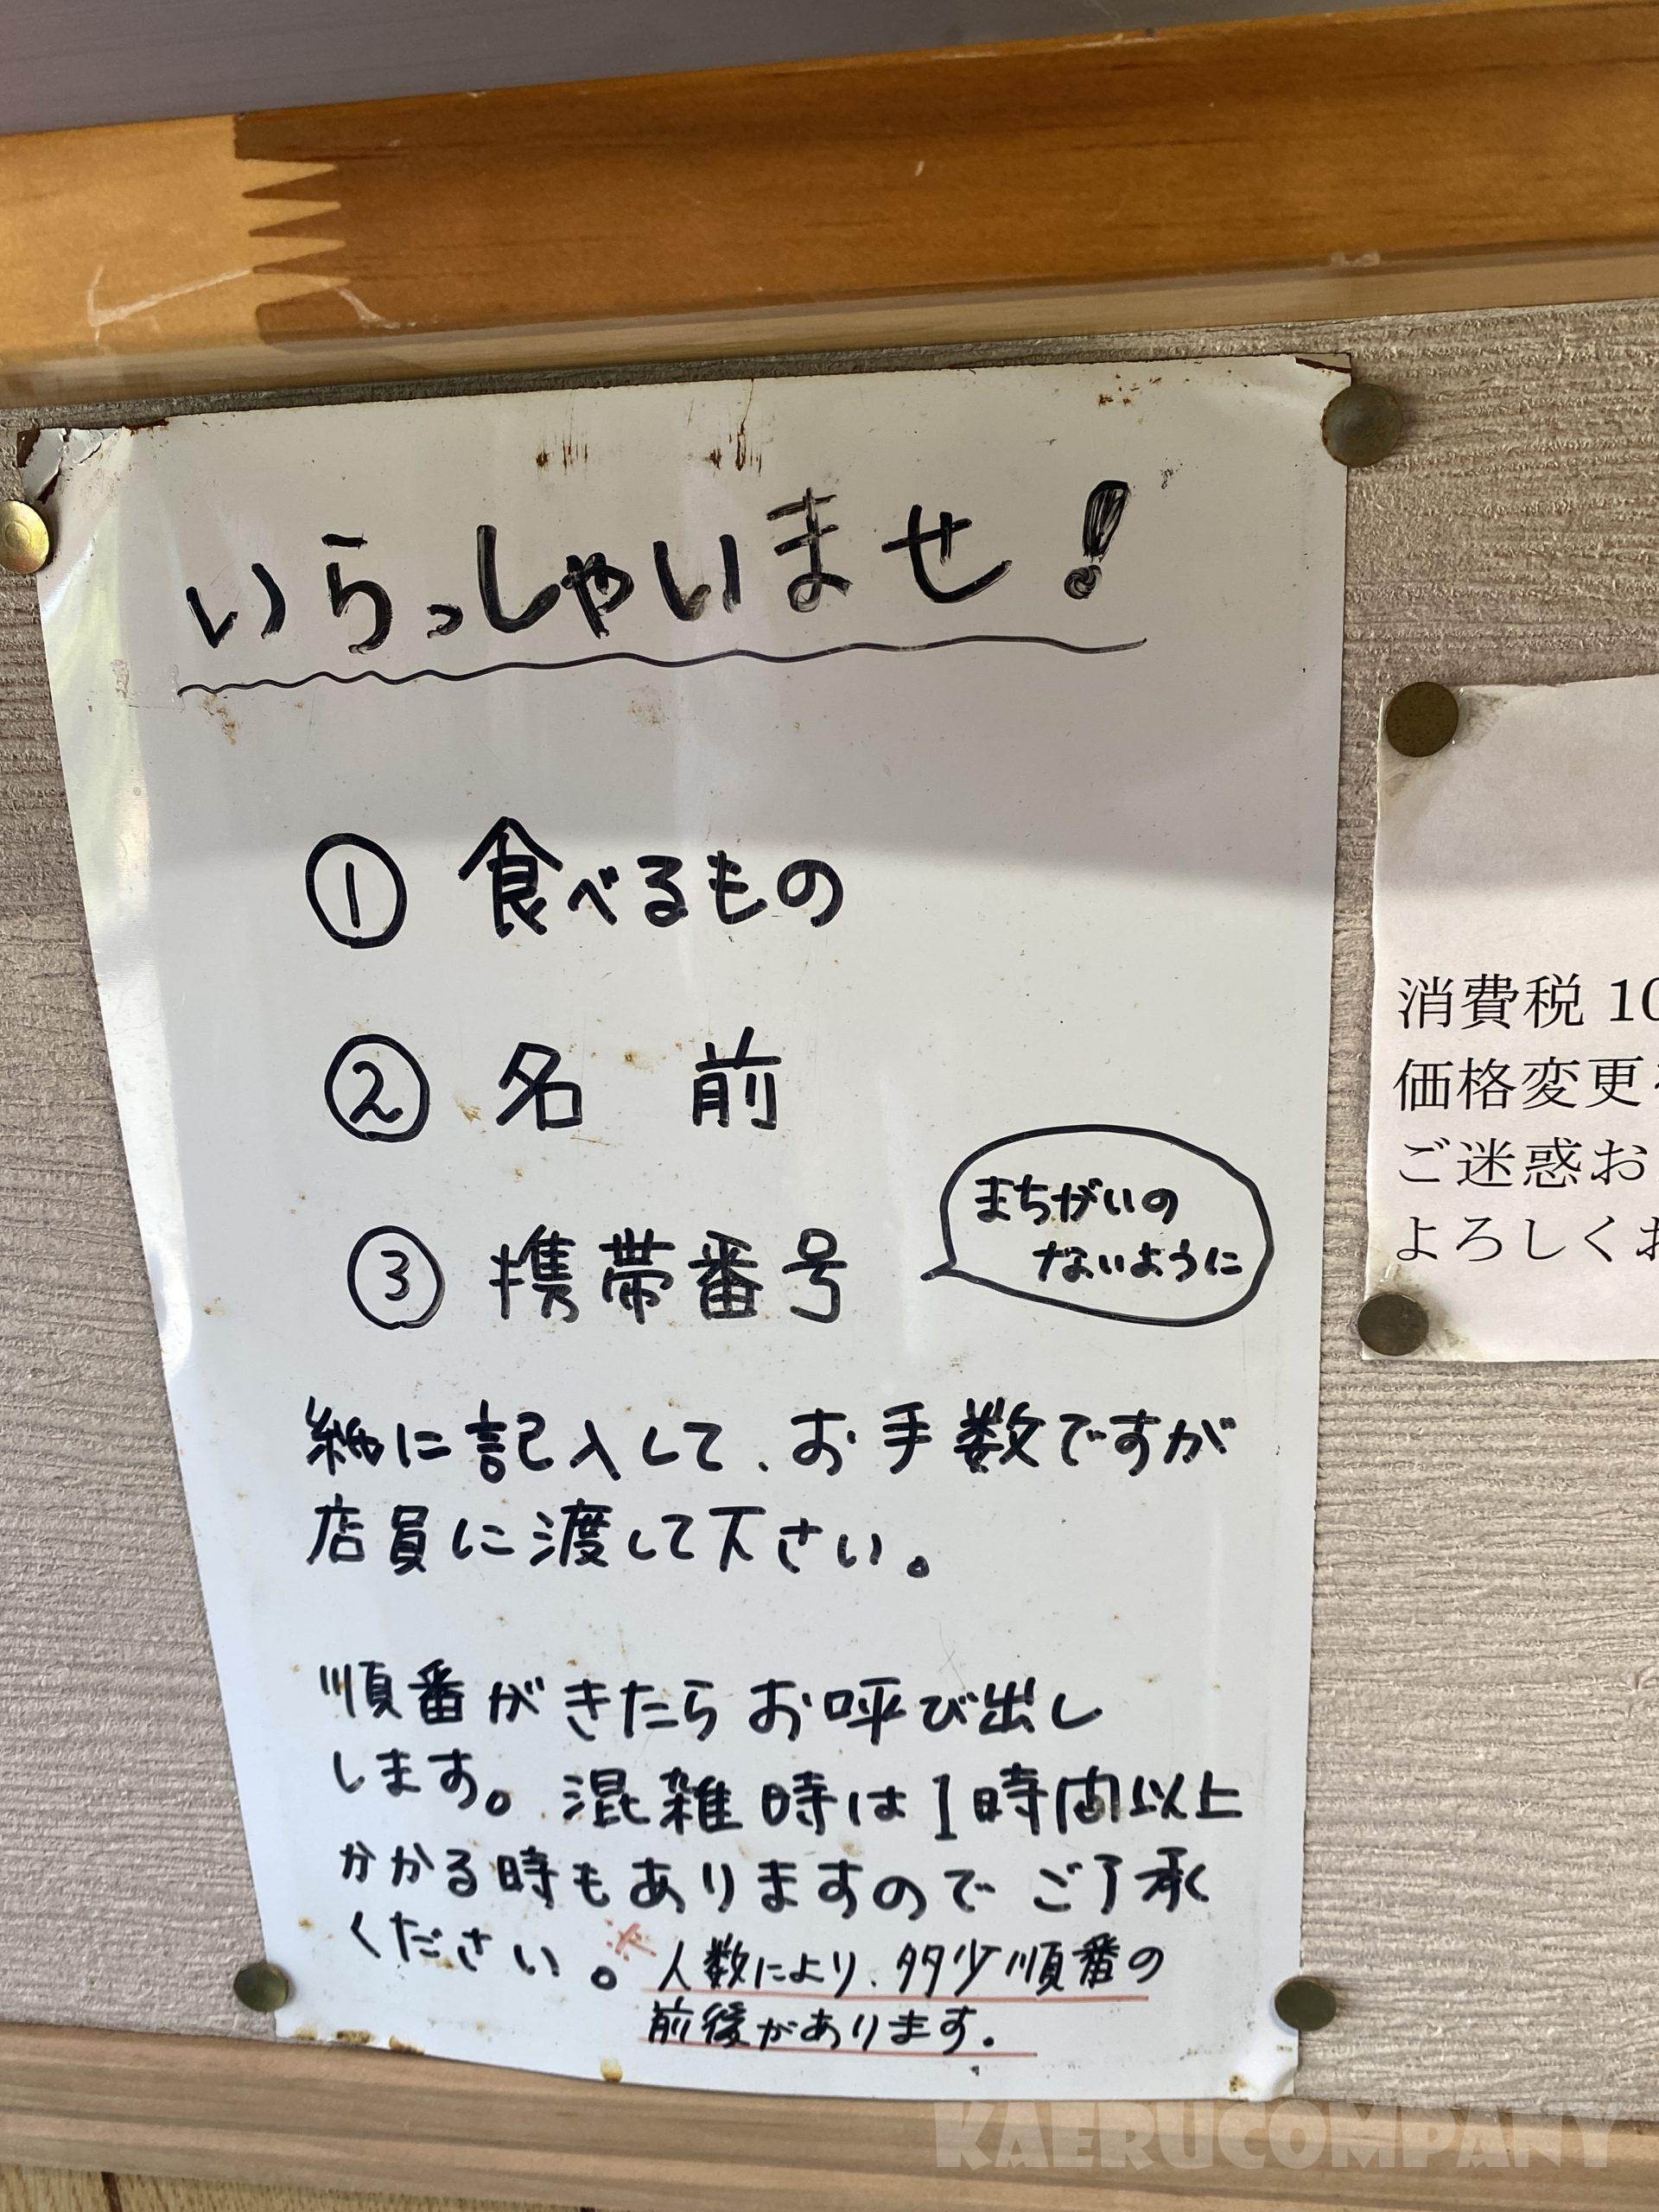 いらっしゃいませ!
① 食べるもの
② 名 前
③ 携帯番号
まちがいの
ないように
紙に記入して、お手数ですが
店員に渡して下さい。
順番がきたらお呼び出し
します。混雑時は1時間以上
かかる時もありますのでご了承
ください。
※人数により、多少順番の
前後があります。
消費税 10
価格変更
ご迷惑お
よろしくお
KAERUCOMPANY